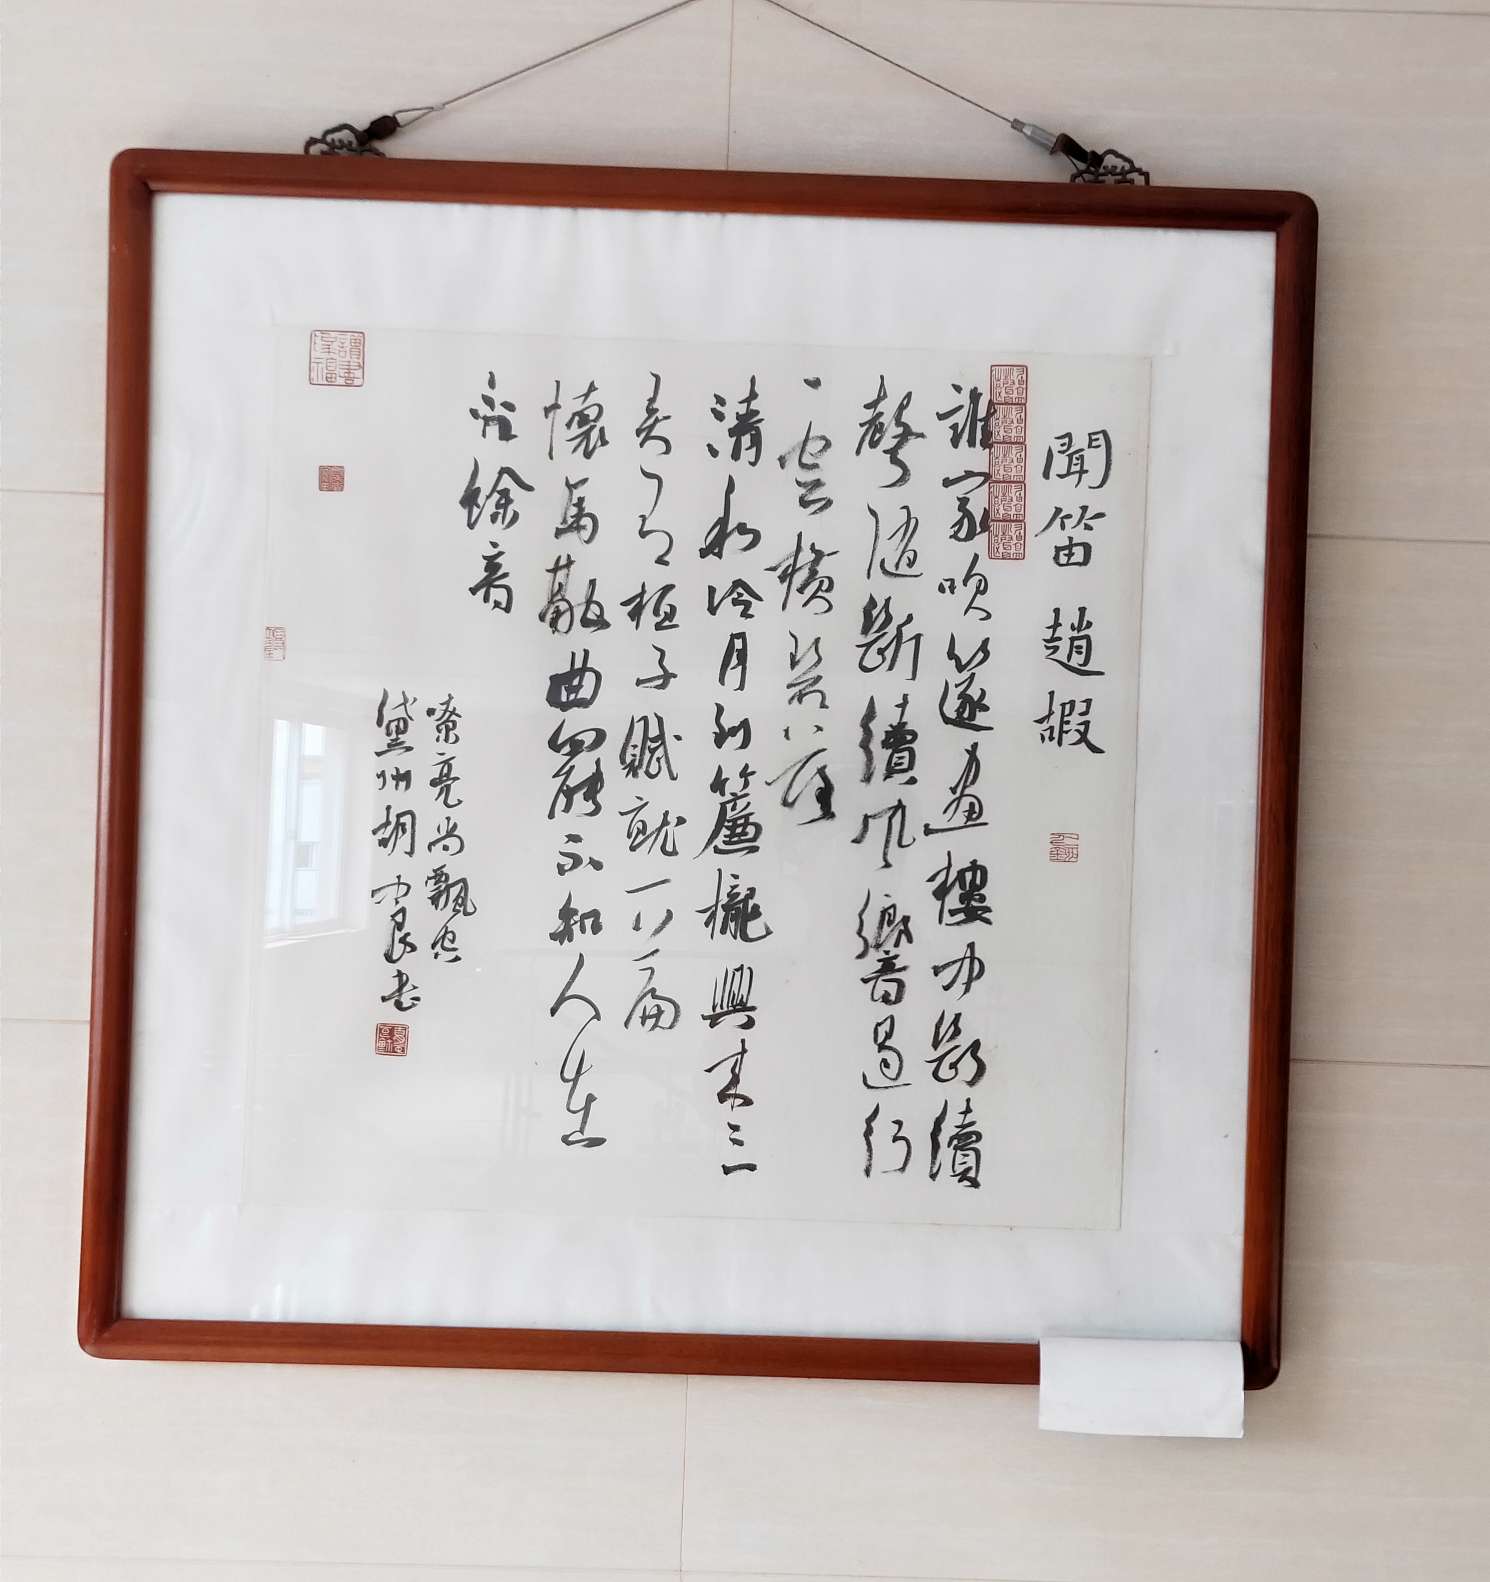 聞笛 趙嘏
誰家吹篴畫樓中斷續
聲隨斷續風響遏行
雲橫碧落
清和冷月到簾櫳興來三
弄有桓子賦就一篇
懷馬融曲罷不知人在
否餘音
嘹亮尚飄空
黛州胡良書